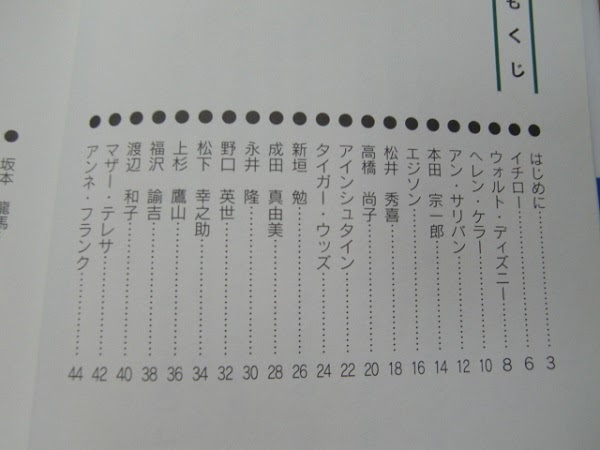 もくじ
● はじめに…………………3
● イチロー…………………6
● ウォルト・ディズニー…………8
● ヘレン・ケラー……………10
● アン・サリバン……………12
● 本田 宗一郎……………14
● エジソン…………………16
● 松井 秀喜………………18
● 高橋 尚子………………20
● アインシュタイン…………22
● タイガー・ウッズ…………24
● 新垣 勉…………………26
● 成田 真由美……………28
● 永井 隆…………………30
● 野口 英世………………32
● 松下 幸之助……………34
● 上杉 鷹山………………36
● 福沢 諭吉………………38
● 渡辺 和子………………40
● マザー・テレサ……………42
● アンネ・フランク…………44
● 坂本 龍馬…